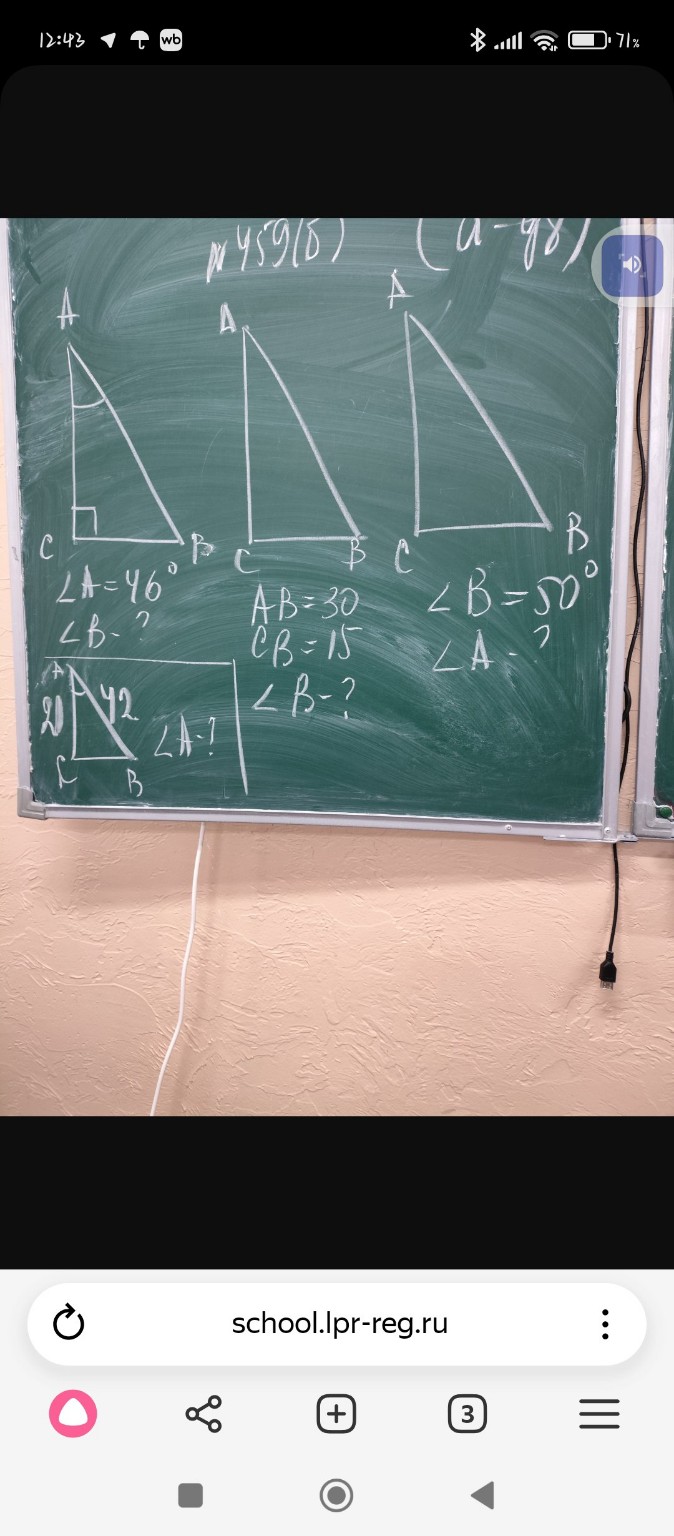 12:43
wb
71%
N459(б)
A
C
B
∠A=46°
∠B-?
A
C
B
AB=30
CB=15
∠B-?
A
C
B
∠B=50°
∠A-?
A
42
C
B
∠A-?
school.lpr-reg.ru
3